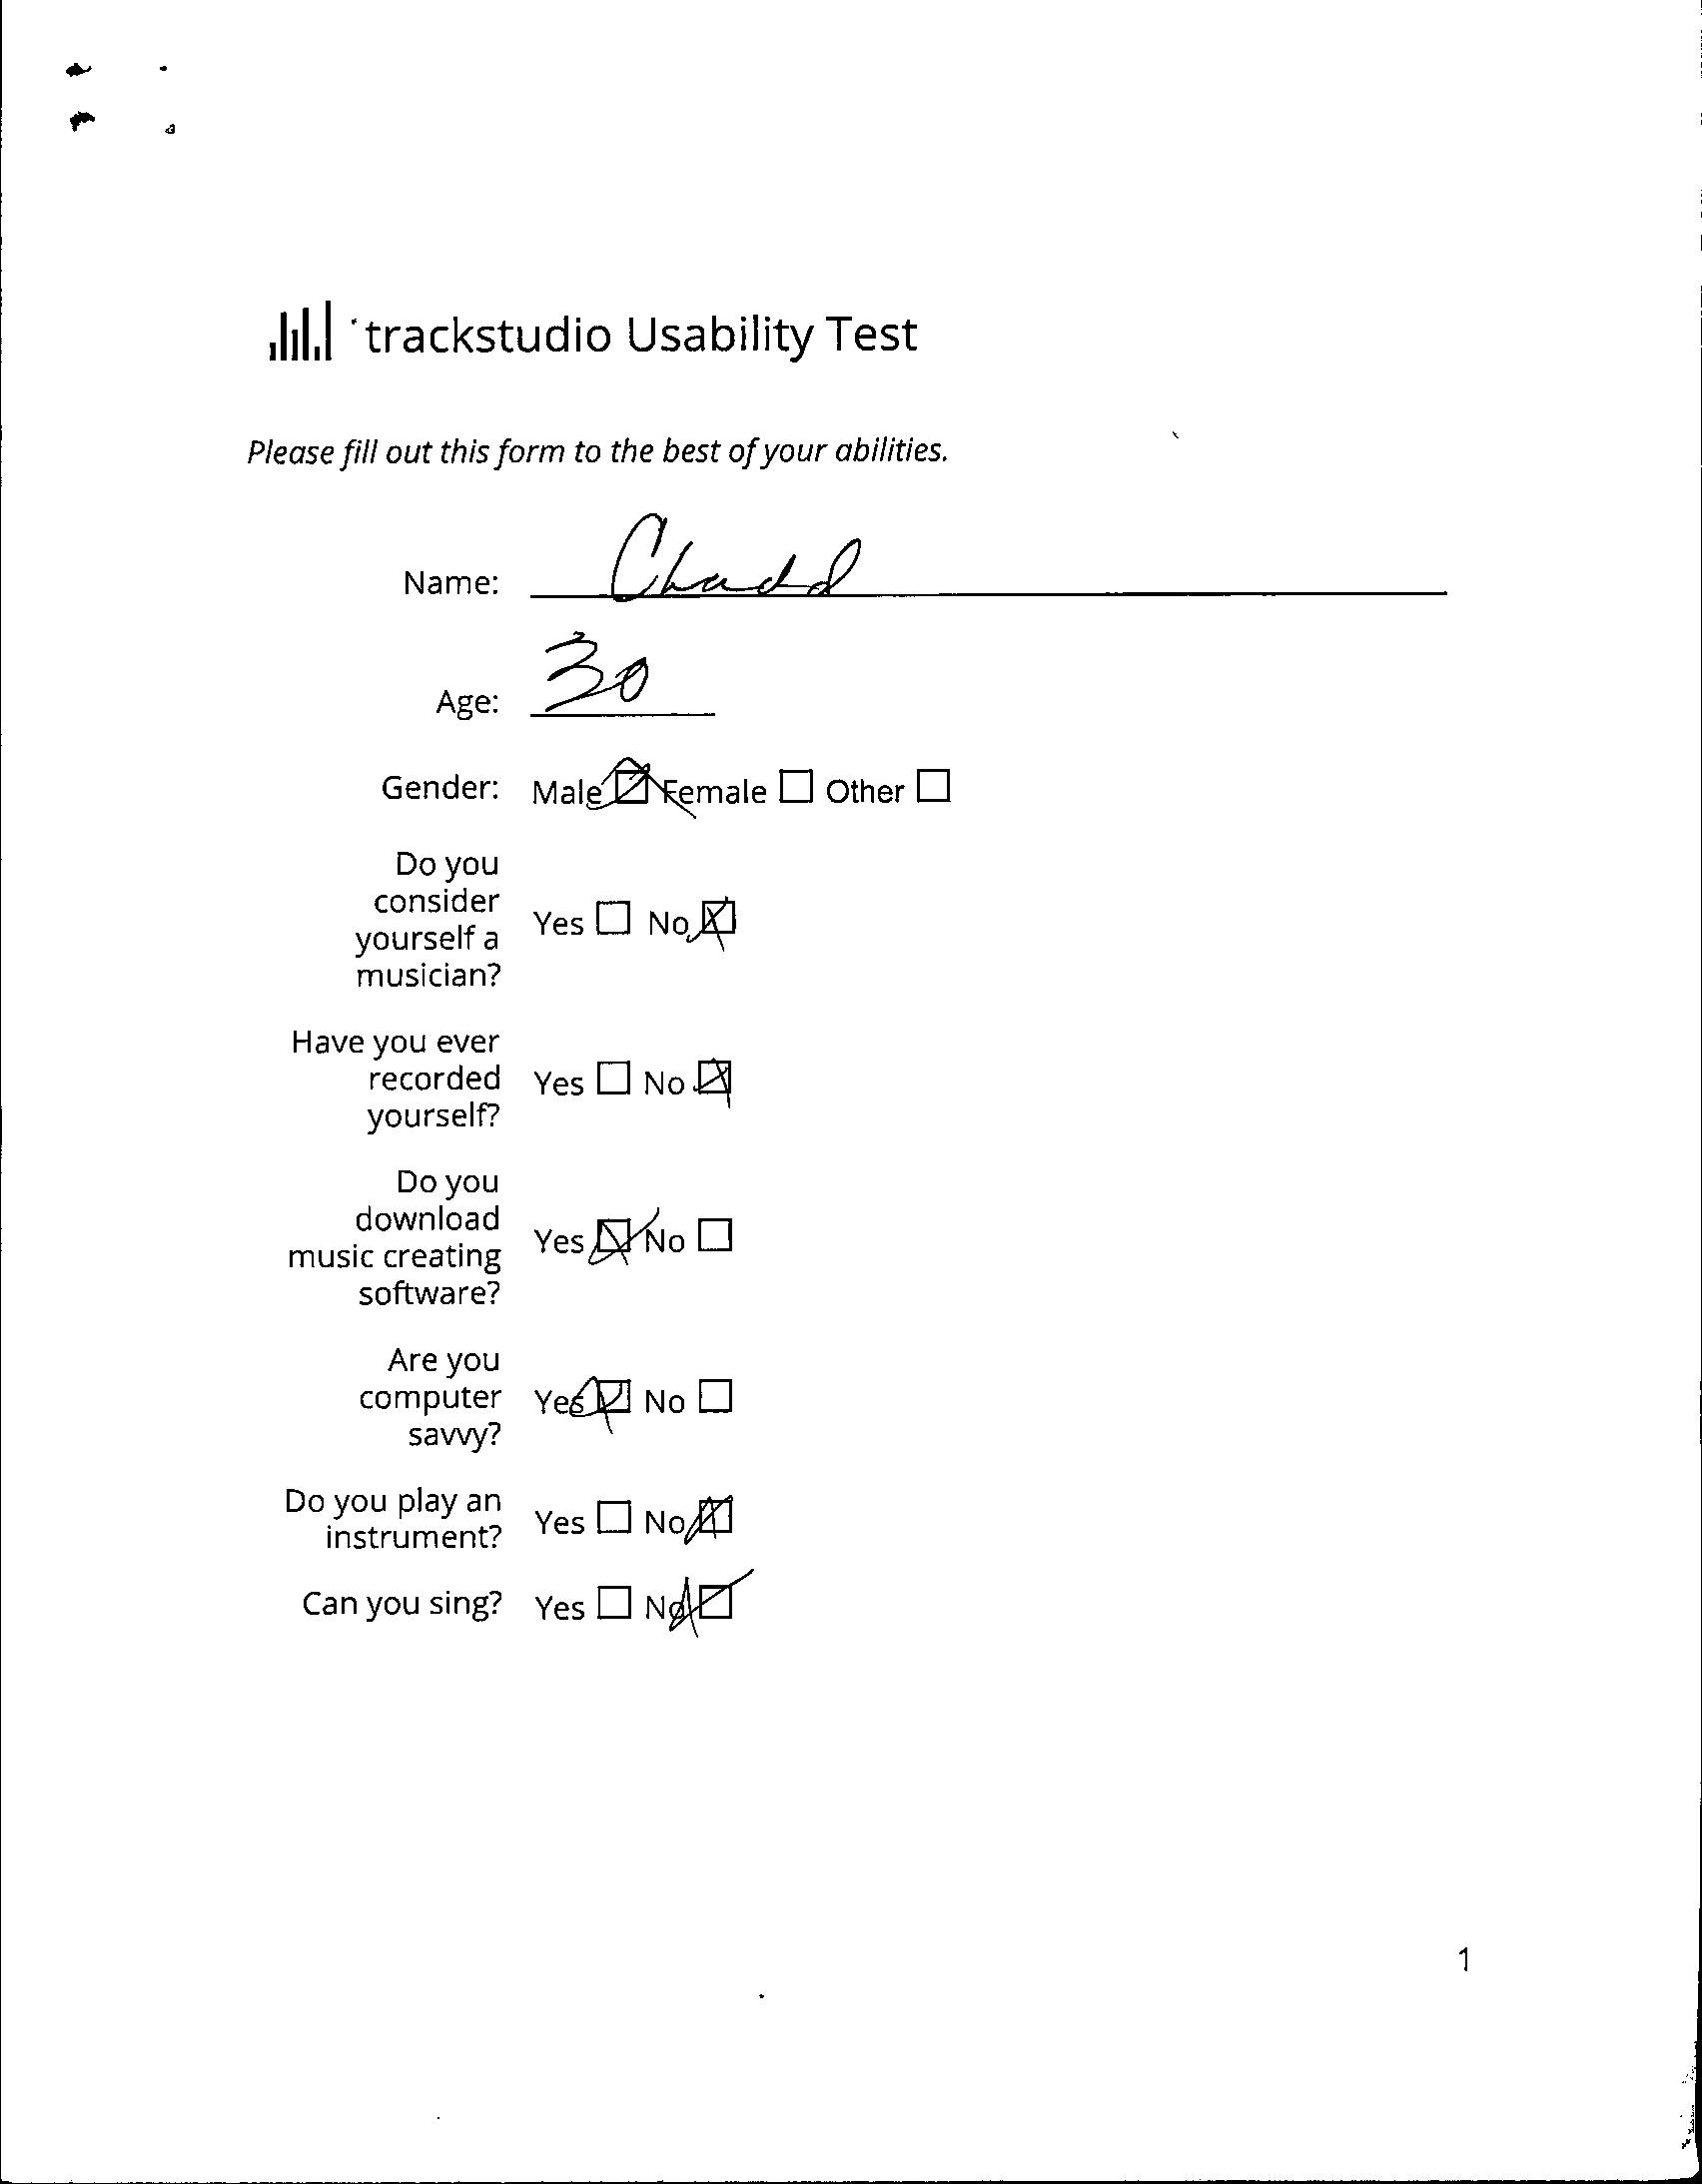 trackstudio Usability Test
Please fill out this form to the best of your abilities.
Name: Chadd
Age: 30
Gender: Male ☒ Female ☐ Other ☐
Do you
consider
yourself a
musician?
Yes ☐ No ☒
Have you ever
recorded
yourself?
Yes ☐ No ☒
Do you
download
music creating
software?
Yes ☒ No ☐
Are you
computer
savvy?
Yes ☒ No ☐
Do you play an
instrument?
Yes ☐ No ☒
Can you sing? Yes ☐ No ☒
1